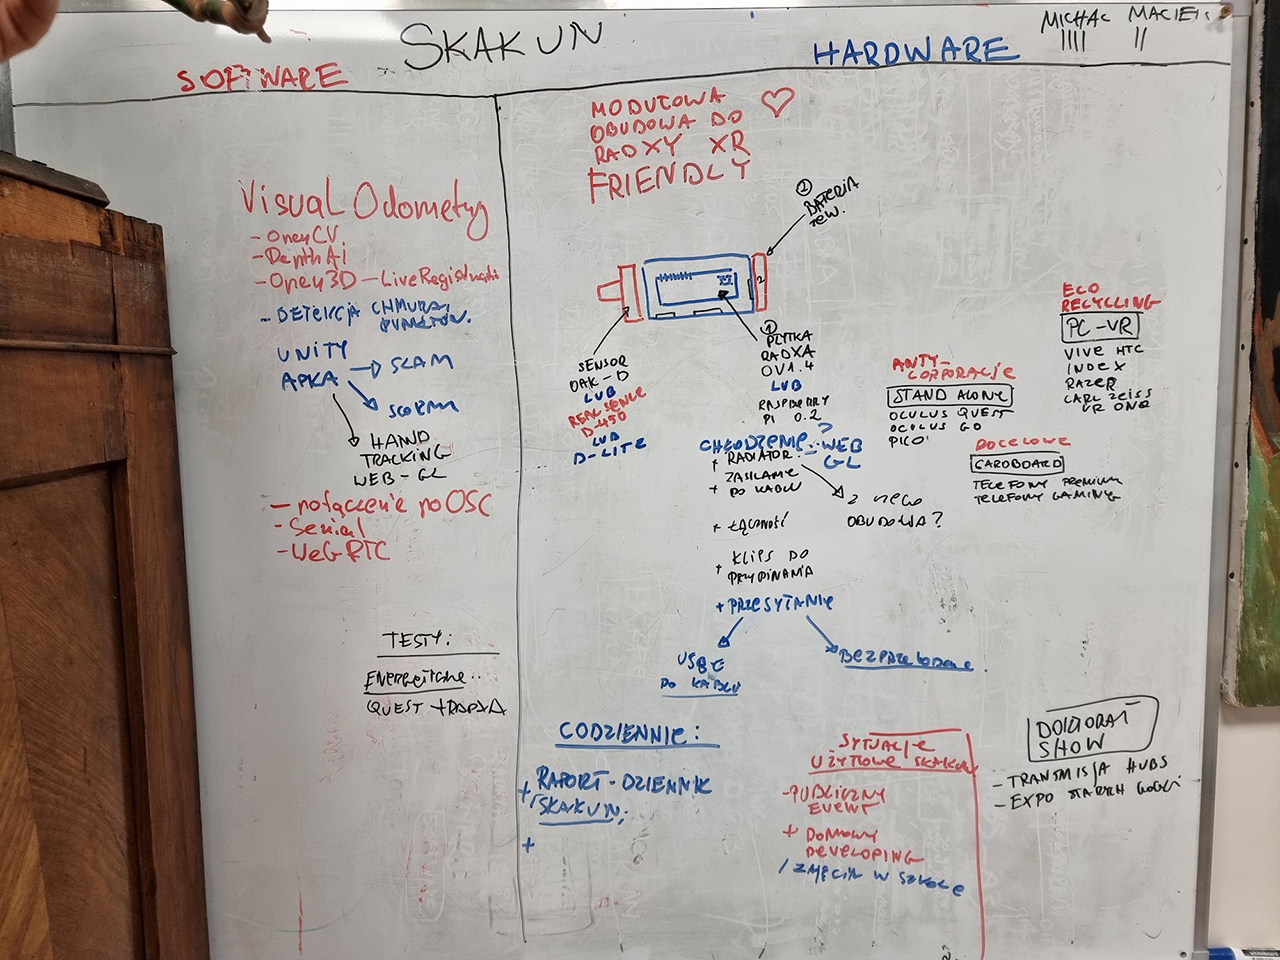 SKAKUN
SOFTWARE
HARDWARE
MICHAŁ MACIEJ
|||| ||
MODUŁOWA
OBUDOWA DO
RADXY XR
FRIENDLY
Visual Odometry
- OpenCV
- DepthAi
- Open3D - Live
- DETEKCJA CHMURA
PUNKTÓW.
UNITY
APKA
SLAM
HAND
TRACKING
WEB-GL
- połączenie po OSC
- Serial
- WebRTC
TESTY:
QUEST + RADXA
2
BATERIA
2
SENSOR
OAK-D
LUB
REALSENSE
D-450
LUB
D-LITE
1
PŁYTKA
RADXA
0V1.4
LUB
RASPBERRY
PI 0.2
?
CHŁODZENIE
WEB
GL
+ RADIATOR
ZASILANIE
+ DO KABLU
+ ŁĄCZNOŚĆ
+ KLIPS DO
PRZYPINANIA
+ PRZESYŁANIE
Z NIEGO
OBUDOWA?
USB C
PO KABLU
ANTY-
CORPORACJE
STAND ALONE
OCULUS QUEST
OCULUS GO
PICO
ECO
RECYCLING
PC-VR
VIVE HTC
INDEX
RAZER
CARL ZEISS
VR ONE
DOCELOWE
CARDBOARD
TELEFONY PREMIUM
TELEFONY GAMING
CODZIENNIE:
+ RAPORT-DZIENNIK
SKAKUN;
+
SYTUACJE
UŻYTKOWE SKAKUN
- PUBLICZNY
EVENT
+ DOMOWY
DEVELOPING
/ ZAJĘCIA W SZKOLE
DOKTORAT
SHOW
- TRANSMISJA HUBS
- EXPO STARYCH GOGLI